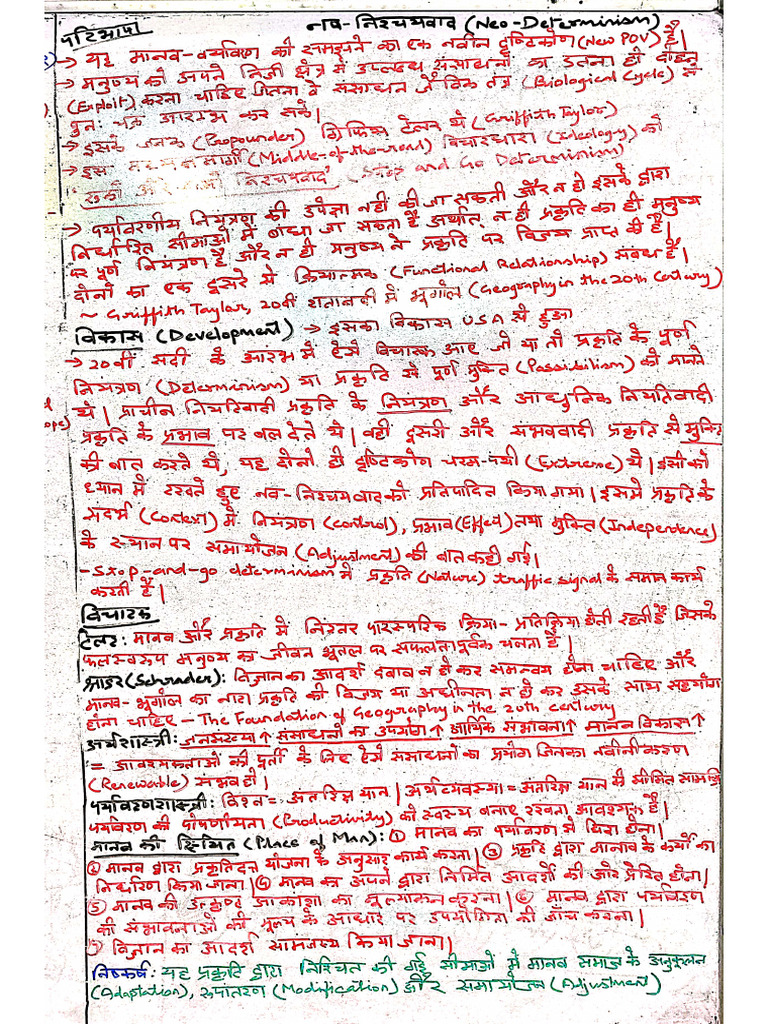 नव-निश्चयवाद (Neo-Determinism)
परिभाषा
→ यह मानव-पर्यावरण को समझने का एक नवीन दृष्टिकोण (New POV) है।
→ मनुष्य को अपने निजी क्षेत्र में उपलब्ध संसाधनों का उतना ही दोहन
(Exploit) करना चाहिए जितना वे संसाधन जैविक तंत्र (Biological Cycle) से
पुनः चक्र आरम्भ कर सकें।
→ इसके जनक (Propounder) ग्रिफिथ टेलर थे (Griffith Taylor)
→ इस मध्यम मार्गी (Middle-of-the-road) विचारधारा (Ideology) को
रुको और जाओ निश्चयवाद' (Stop and Go Determinism)
→ पर्यावरणीय नियंत्रण की उपेक्षा नहीं की जा सकती और न ही इसके द्वारा
निर्धारित सीमाओं में बांधा जा सकता है अर्थात् न ही प्रकृति का ही मनुष्य
पर पूर्ण नियंत्रण है और न ही मनुष्य ने प्रकृति पर विजय प्राप्त की है।
दोनों का एक दूसरे से क्रियात्मक (Functional Relationship) संबंध है।
~ Griffith Taylor, 20वीं शताब्दी में भूगोल (Geography in the 20th Century)
विकास (Development) → इसका विकास USA से हुआ
→ 20वीं सदी के आरंभ में ऐसे विचारक आए जो या तो प्रकृति के पूर्ण
नियंत्रण (Determinism) या प्रकृति से पूर्ण मुक्ति (Possibilism) को मानते
थे। प्राचीन नियतिवादी प्रकृति के नियंत्रण और आधुनिक नियतिवादी
प्रकृति के प्रभाव पर बल देते थे। वहीं दूसरी और संभववादी प्रकृति से मुक्ति
की बात करते थे, यह दोनों ही दृष्टिकोण चरम-पंथी (Extreme) थे। इसी को
ध्यान में रखते हुए नव-निश्चयवाद को प्रतिपादित किया गया। इसमें प्रकृति के
संदर्भ (Context) में नियंत्रण (control), प्रभाव (Effect) तथा मुक्ति (Independence)
के स्थान पर समायोजन (Adjustment) की बात कही गई।
- Stop-and-go determinism में प्रकृति (Nature) traffic signal के समान कार्य
करती है।
विचारक
टेलर: मानव और प्रकृति में निरंतर पारस्परिक क्रिया-प्रतिक्रिया होती रहती है जिसके
फलस्वरूप मनुष्य का जीवन भूतल पर सफलतापूर्वक चलता है।
श्राडर (Schrader): विज्ञान का आदर्श दबाव न हो कर समन्वय होना चाहिए और
मानव-भूगोल का नारा प्रकृति की विजय या अधीनता न हो कर इसके साथ सहयोग
होना चाहिए - The Foundation of Geography in the 20th century
अर्थशास्त्री: जनसंख्या↑ संसाधनों का उपयोग↑ आर्थिक संभावना↑ मानव विकास↑
= आवश्यकताओं की पूर्ती के लिए ऐसे संसाधनों का प्रयोग जिनका नवीनीकरण
(Renewable) संभव हो।
पर्यावरणशास्त्री: विश्व = अंतरिक्ष यान। अर्थव्यवस्था = अंतरिक्ष यान सी सीमित सामग्री
पर्यावरण की पोषणीयता (Productivity) को स्वस्थ बनाए रखना आवश्यक है।
मानव की स्थिति (Place of Man): ① मानव का पर्यावरण से घिरा होना।
② मानव द्वारा प्रकृतिदत्त योजना के अनुसार कार्य करना। ③ प्रकृति द्वारा मानव के कार्यों का
निर्धारण किया जाना। ④ मानव का अपने द्वारा निर्मित आदर्शों की ओर प्रेरित होना।
⑤ मानव की उत्कृष्ट आकांक्षा का मूल्यांकन करना। ⑥ मानव द्वारा पर्यावरण
की संभावनाओं की मूल्य के आधार पर उपयोगिता की जाँच करना।
⑦ विज्ञान का आदर्श सामंजस्य किया जाना।
निष्कर्ष: यह प्रकृति द्वारा निश्चित की गई सीमाओं में मानव समाज के अनुकूलन
(Adaptation), रूपांतरण (Modification) और समायोजन (Adjustment)